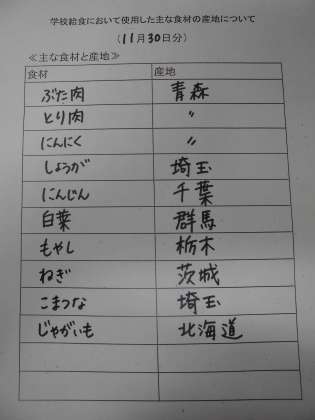 学校給食において使用した主な食材の産地について
(11月30日分)
≪主な食材と産地≫
食材 産地
ぶた肉 青森
とり肉 〃
にんにく 〃
しょうが 埼玉
にんじん 千葉
白菜 群馬
もやし 栃木
ねぎ 茨城
こまつな 埼玉
じゃがいも 北海道